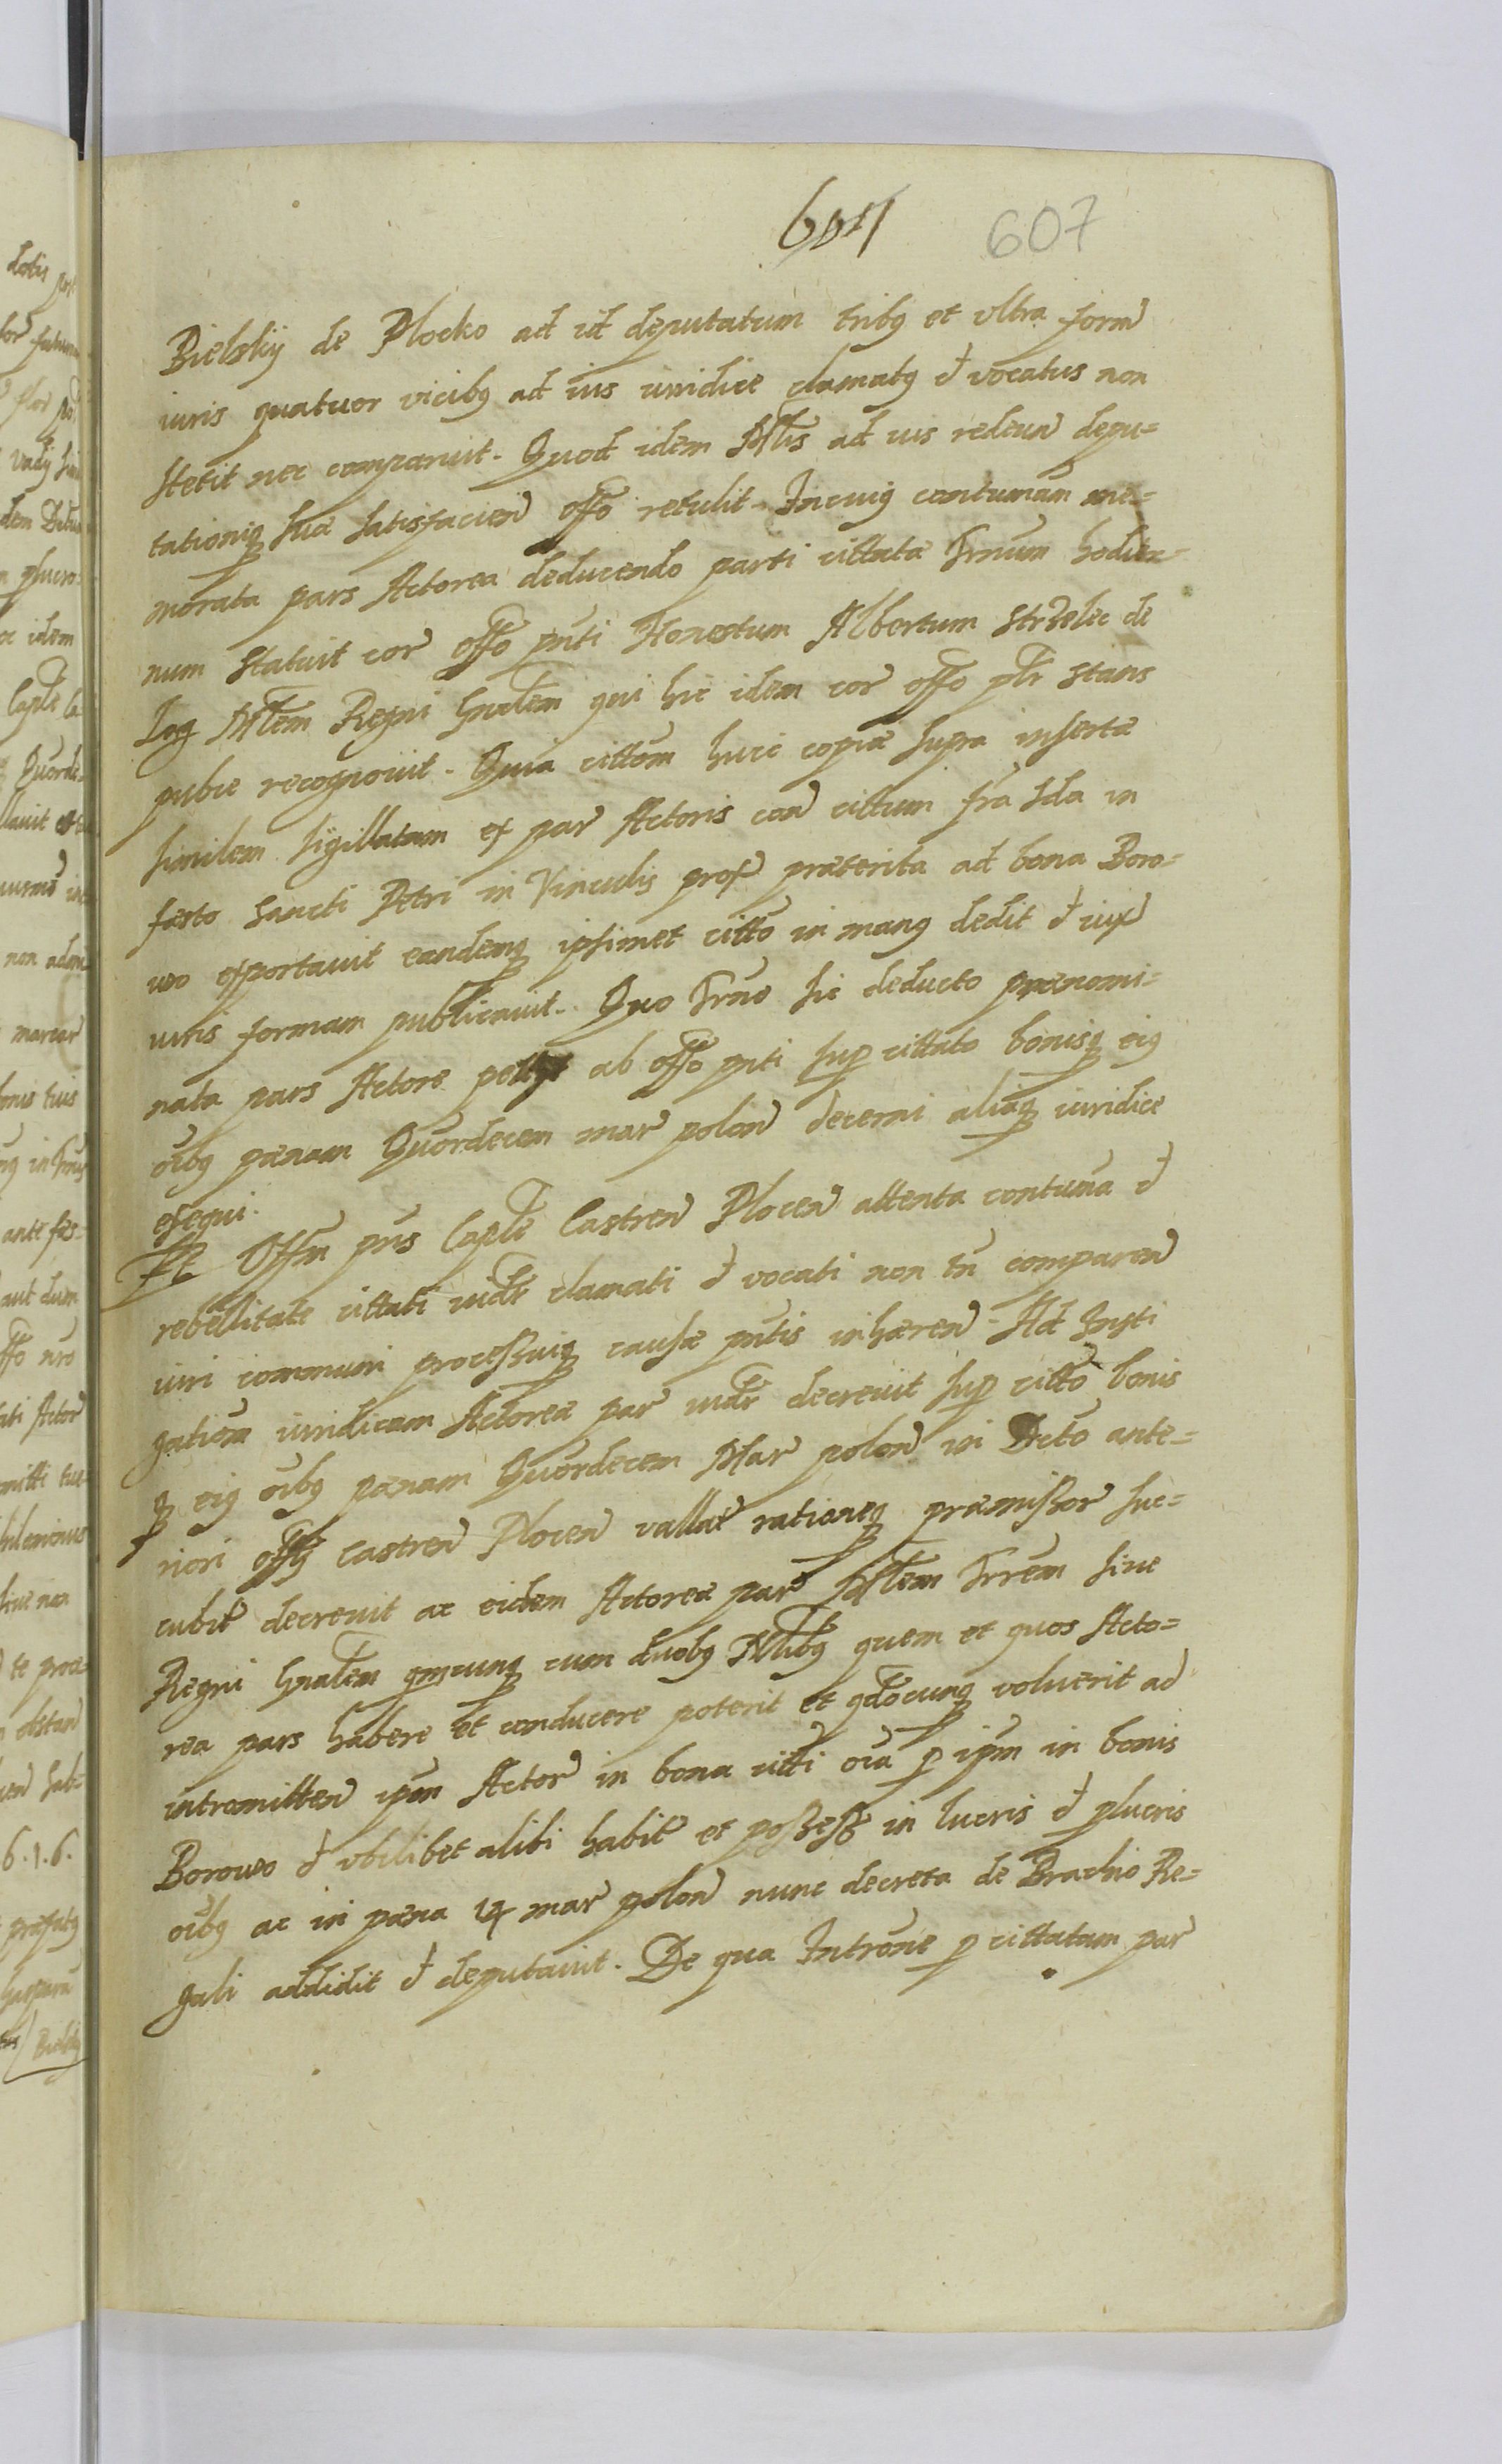 607
Bielskij de Plocko ad id deputatum tribq et ultra form
iuris quatuor vicibq ad ius iuridice clamatq & vocatus non
stetit nec comparuit. Quod idem Mlis ad ius rediun depu=
tationiq suæ satisfacien offo retulit. In cuiq contumam me=
morata pars Actorea deducendo parti cittatæ Trnum hodier=
num statuit cor offo pnti Honestum Albertum Strzelec de
Mlem Regni Gnalem qui hic idem cor offo plr stans
publice recognovit. Quia cittom huic copiæ supra insertæ
similem sigillatam ex par Actoris con cittum fra 2da in
festo Sancti Petri in Vinculis prox præterita ad bona Boro=
wo exportavit eandemq ipsimet citto in manq dedit & iux
iuris formam publicavit. Quo Trno sic deducto prænomi=
nata pars Actore ab offo pnti sup cittato bonisq eiq
oibq pænam Quordecem mar polon decerni aliaq iuridice
exequi.
Offm pns Caple Castren Plocen attenta contuma &
rebellitate cittati iudr clamati & vocati non tn comparen
iuri communi processuiq causæ pntis inhæren. Ad Insti
gationem iuridicam Actoreæ par iudr decrevit sup citto bonis
q eiq oibq pænam Quordecem Mar polon in Acto ante=
riori offij Castren Plocen vallat rationeq præmissor suc=
cubit decrevit ac eidem Actoreæ par Mlem Trrem sive
Regni Gnalem qmcunq cum duobq Nlibq quem et quos Acto=
rea pars habere et conducere poterit et qdocunq voluerit ad
intromitten ipm Actor in bona citti oia p ipm in bonis
Borowo & ubilibet alibi habit et possess in lucris & plucris
oibq ac in pæna 14 mar polon nunc decreta de Brachio Re=
gali addidit & deputavit. De qua Introne p cittatam par